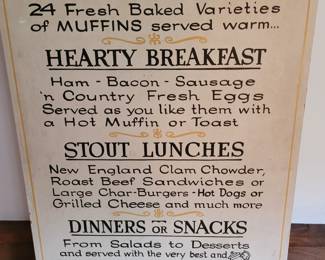 24 Fresh Baked Varieties
of MUFFINS served warm...
HEARTY BREAKFAST
Ham - Bacon - Sausage
'n Country Fresh Eggs
Served as you like them with
a Hot Muffin or Toast
STOUT LUNCHES
New England Clam Chowder,
Roast Beef Sandwiches or
Large Char-Burgers - Hot Dogs or
Grilled Cheese and much more
DINNERS OR SNACKS
From Salads to Desserts
and served with the very best and